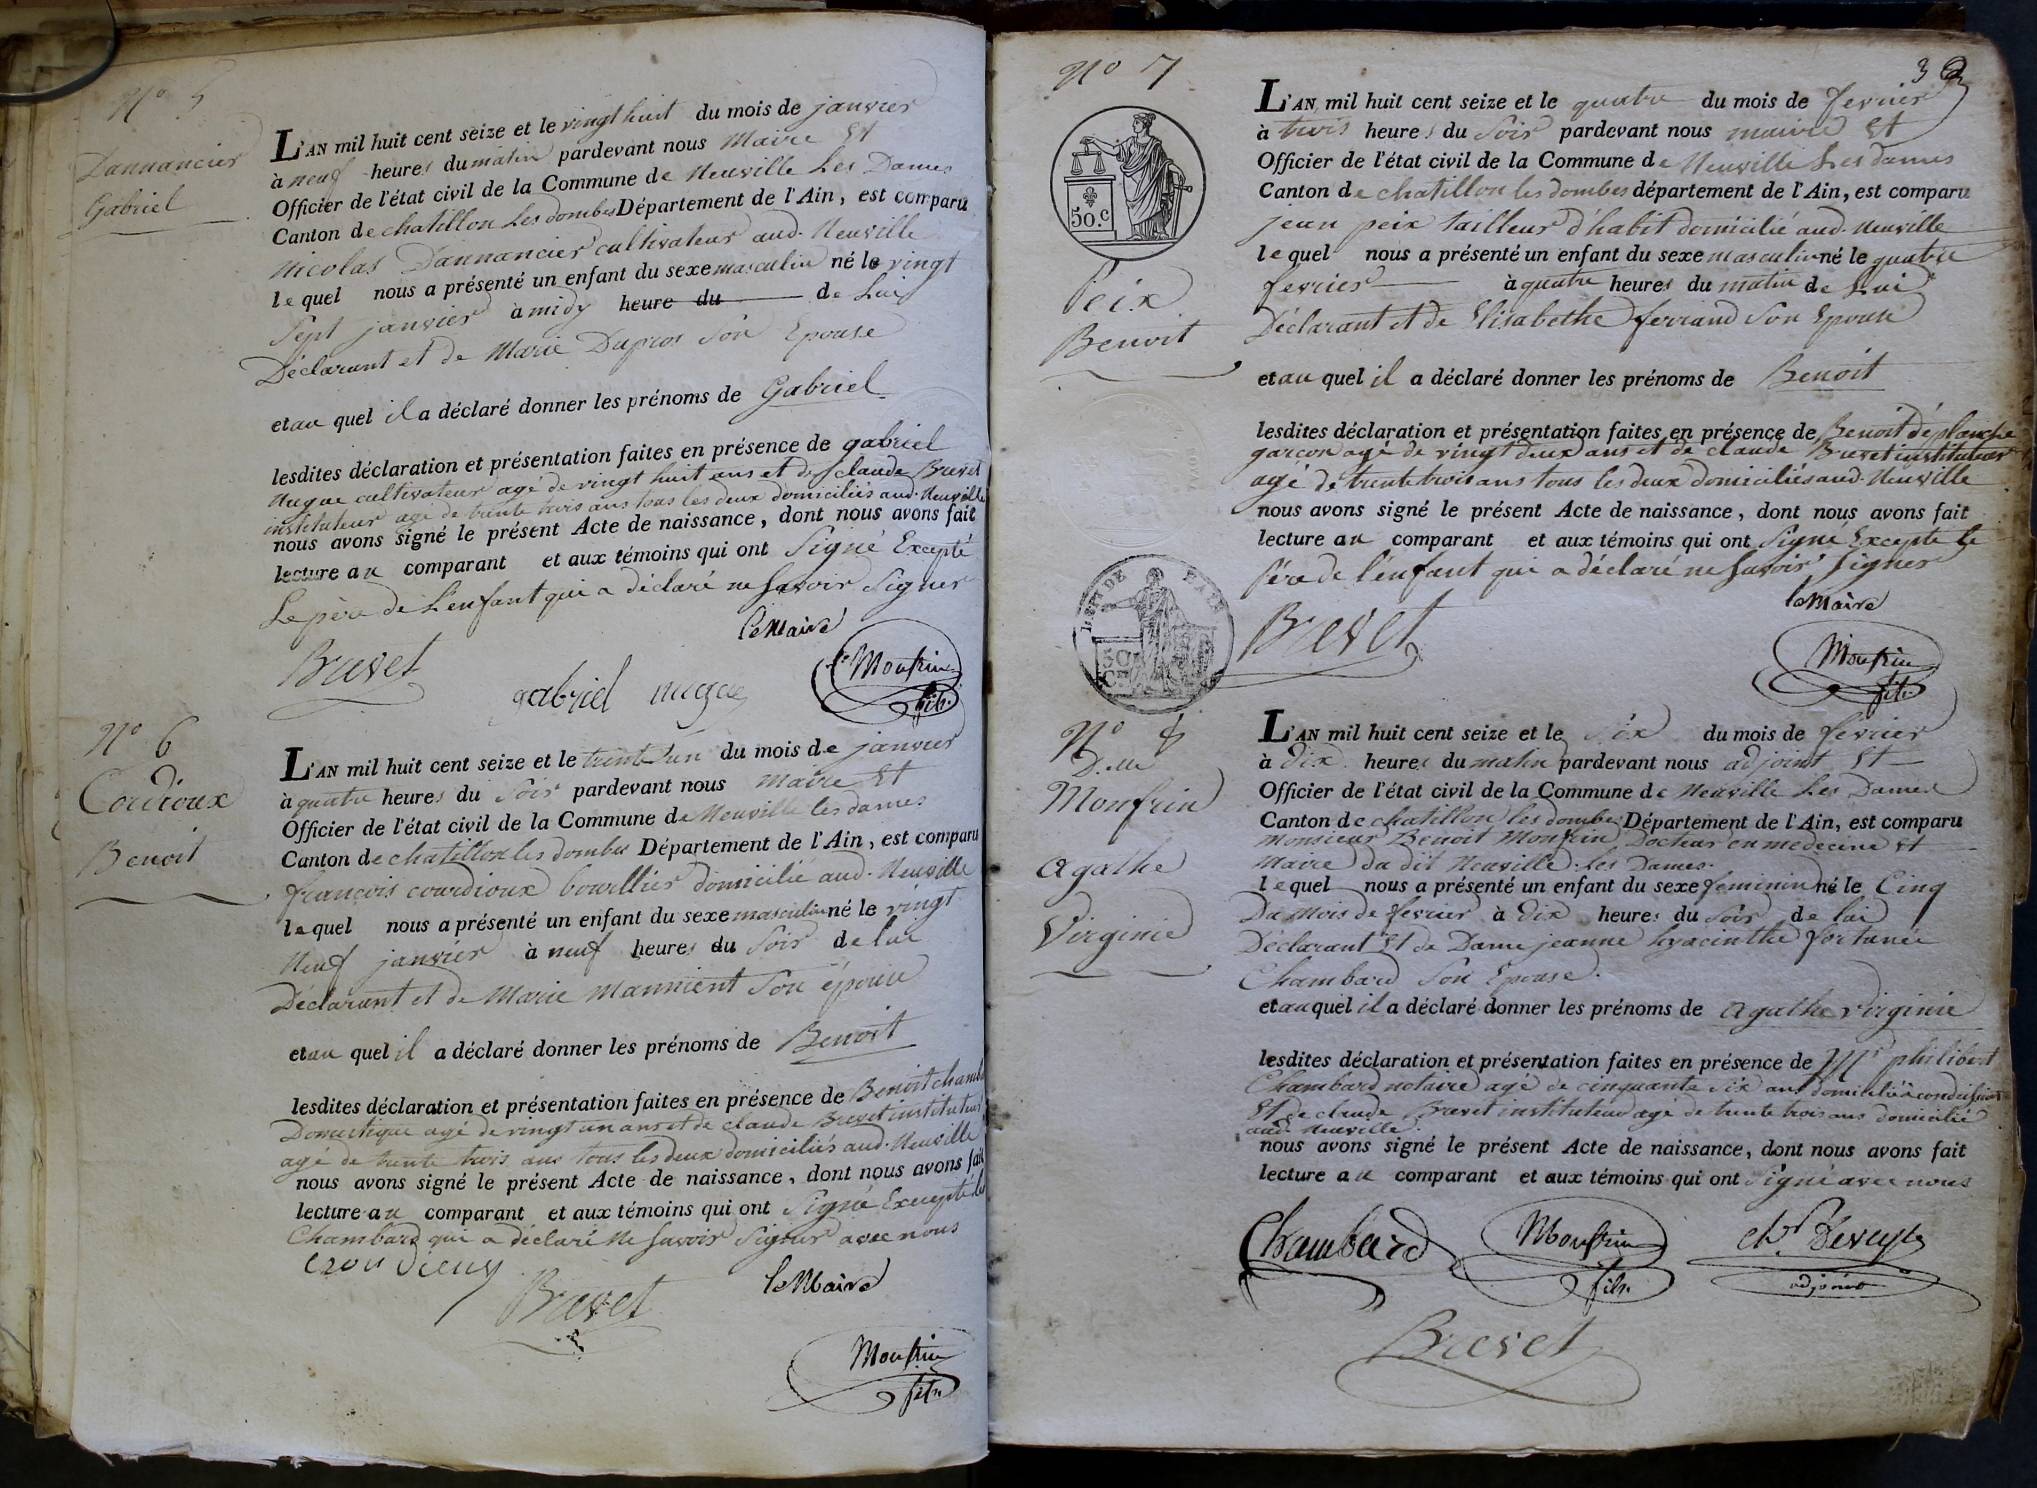 N° 5
Dannancier
Gabriel
L'AN mil huit cent seize et le vingt huit du mois de janvier
à neuf heures du matin pardevant nous Maire Et
Officier de l'état civil de la Commune de Neuville Les Dames
Canton de chatillon Les dombes Département de l'Ain, est comparu
Nicolas Dannancier cultivateur aud. Neuville
lequel nous a présenté un enfant du sexe masculin né le vingt
Sept janvier à midy heure du de Lui
Déclarant et de Marie Dupras Son Epouse
et au quel il a déclaré donner les prénoms de Gabriel
lesdites déclaration et présentation faites en présence de gabriel
Nugue cultivateur agé de vingt huit ans et de claude Brevet
instituteur agé de trente trois ans tous les deux domiciliés aud. Neuville
nous avons signé le présent Acte de naissance, dont nous avons fait
lecture au comparant et aux témoins qui ont Signé Excepté
Le père de L'enfant qui a déclaré ne Savoir Signer
le Maire
Brevet
gabriel nugue
Monfrin
fils
N° 6
Cordioux
Benoit
L'AN mil huit cent seize et le trente un du mois de janvier
à quatre heures du Soir pardevant nous Maire Et
Officier de l'état civil de la Commune de Neuville les dames
Canton de chatillon les dombes Département de l'Ain, est comparu
françois courdioux bourllier domicilié aud. Neuville
lequel nous a présenté un enfant du sexe masculin né le vingt
Neuf janvier à neuf heures du Soir de lui
Déclarant et de Marie Mannient Son épouse
et au quel il a déclaré donner les prénoms de Benoit
lesdites déclaration et présentation faites en présence de Benoit
Domestique agé de vingt un ans et de claude Brevet instituteur
agé de trente trois ans tous les deux domiciliés aud. Neuville
nous avons signé le présent Acte de naissance, dont nous avons fait
lecture au comparant et aux témoins qui ont Signé Excepté le
Chambard qui a déclaré Ne Savoir Signer avec nous
Brevet
le Maire
Monfrin
fils
N° 7
3
50.c
Peix
Benoit
L'AN mil huit cent seize et le quatre du mois de fevrier
à trois heures du Soir pardevant nous maire Et
Officier de l'état civil de la Commune de Neuville Les dames
Canton de chatillon les dombes département de l'Ain, est comparu
jean peix tailleur d'habit domicilié aud. Neuville
lequel nous a présenté un enfant du sexe masculin né le quatre
fevrier à quatre heures du matin de Lui
Déclarant et de Elisabethe ferrand Son Epouse
et au quel il a déclaré donner les prénoms de Benoit
lesdites déclaration et présentation faites en présence de Benoit déplanche
garçon agé de vingt deux ans et de claude Brevet instituteur
agé de trente trois ans tous les deux domiciliés aud. Neuville
nous avons signé le présent Acte de naissance, dont nous avons fait
lecture au comparant et aux témoins qui ont Signé Excepté le
Père de l'enfant qui a déclaré ne Savoir Signer
le Maire
Brevet
Monfrin
fils
N° 8
D.lle
Monfrin
Agathe
Virginie
L'AN mil huit cent seize et le Six du mois de fevrier
à Dix heures du matin pardevant nous adjoint Et
Officier de l'état civil de la Commune de Neuville Les Dames
Canton de chatillon les dombes Département de l'Ain, est comparu
Monsieur Benoit Monfrin Docteur en medecine et
Maire du dit Neuville Les Dames
lequel nous a présenté un enfant du sexe feminin né le Cinq
Du Mois de fevrier à Dix heures du Soir de lui
Déclarant Et de Dame jeanne hyacinthe fortunée
Chambard Son Epouse.
et au quel il a déclaré donner les prénoms de Agathe Virginie
lesdites déclaration et présentation faites en présence de Mr philibert
Chambard notaire agé de cinquante Six ans domicilié à condeissiat
Et de claude Brevet instituteur agé de trente trois ans domicilié
aud. Neuville.
nous avons signé le présent Acte de naissance, dont nous avons fait
lecture au comparant et aux témoins qui ont Signé avec nous
Chambard
Monfrin
fils
adjoint
Brevet